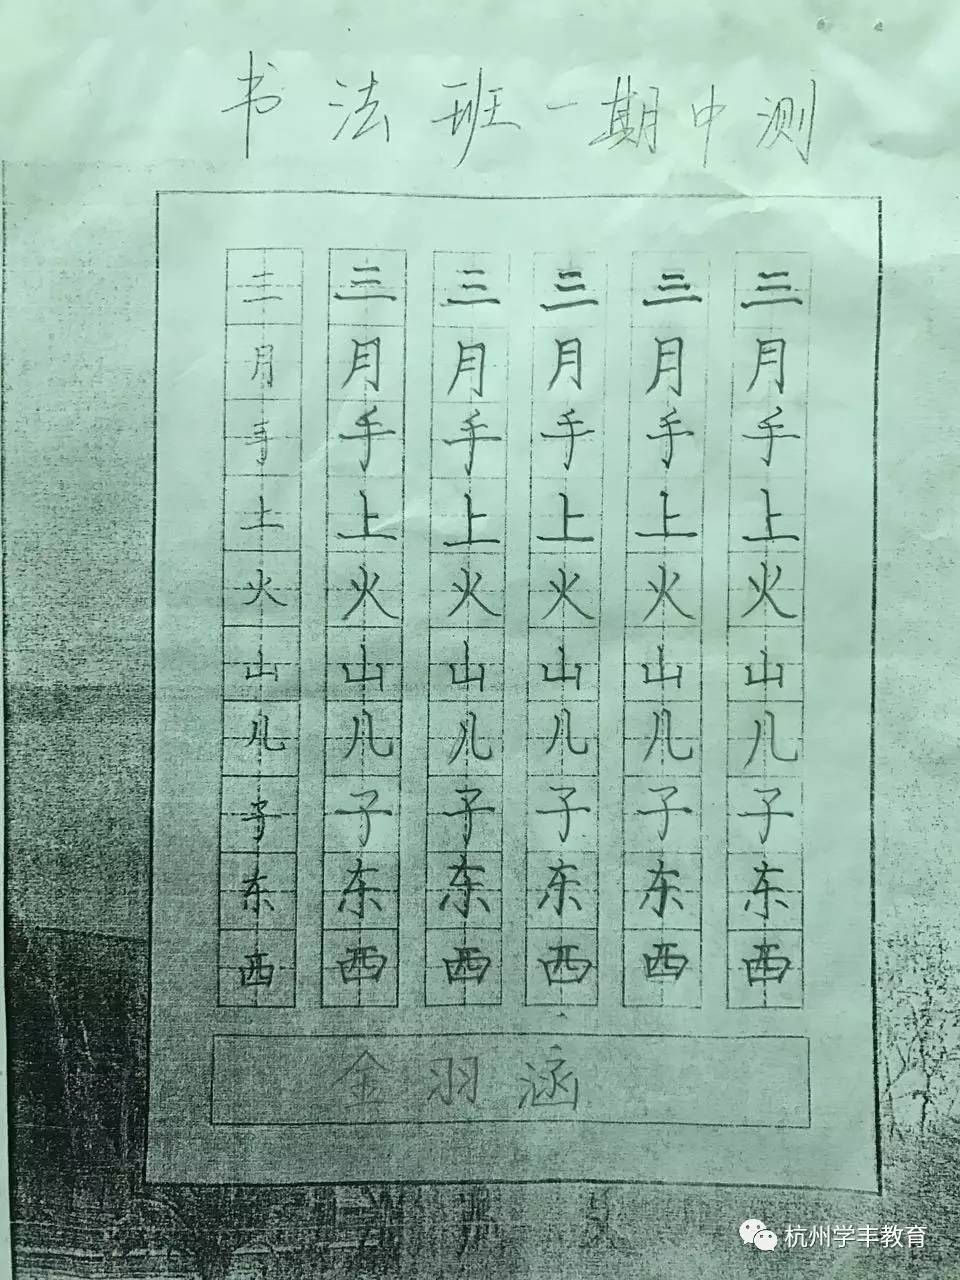 书法班一期中测
三 三 三 三 三 三
月 月 月 月 月 月
手 手 手 手 手 手
上 上 上 上 上 上
火 火 火 火 火 火
山 山 山 山 山 山
儿 儿 儿 儿 儿 儿
子 子 子 子 子 子
东 东 东 东 东 东
西 西 西 西 西 西
金羽涵
杭州学丰教育